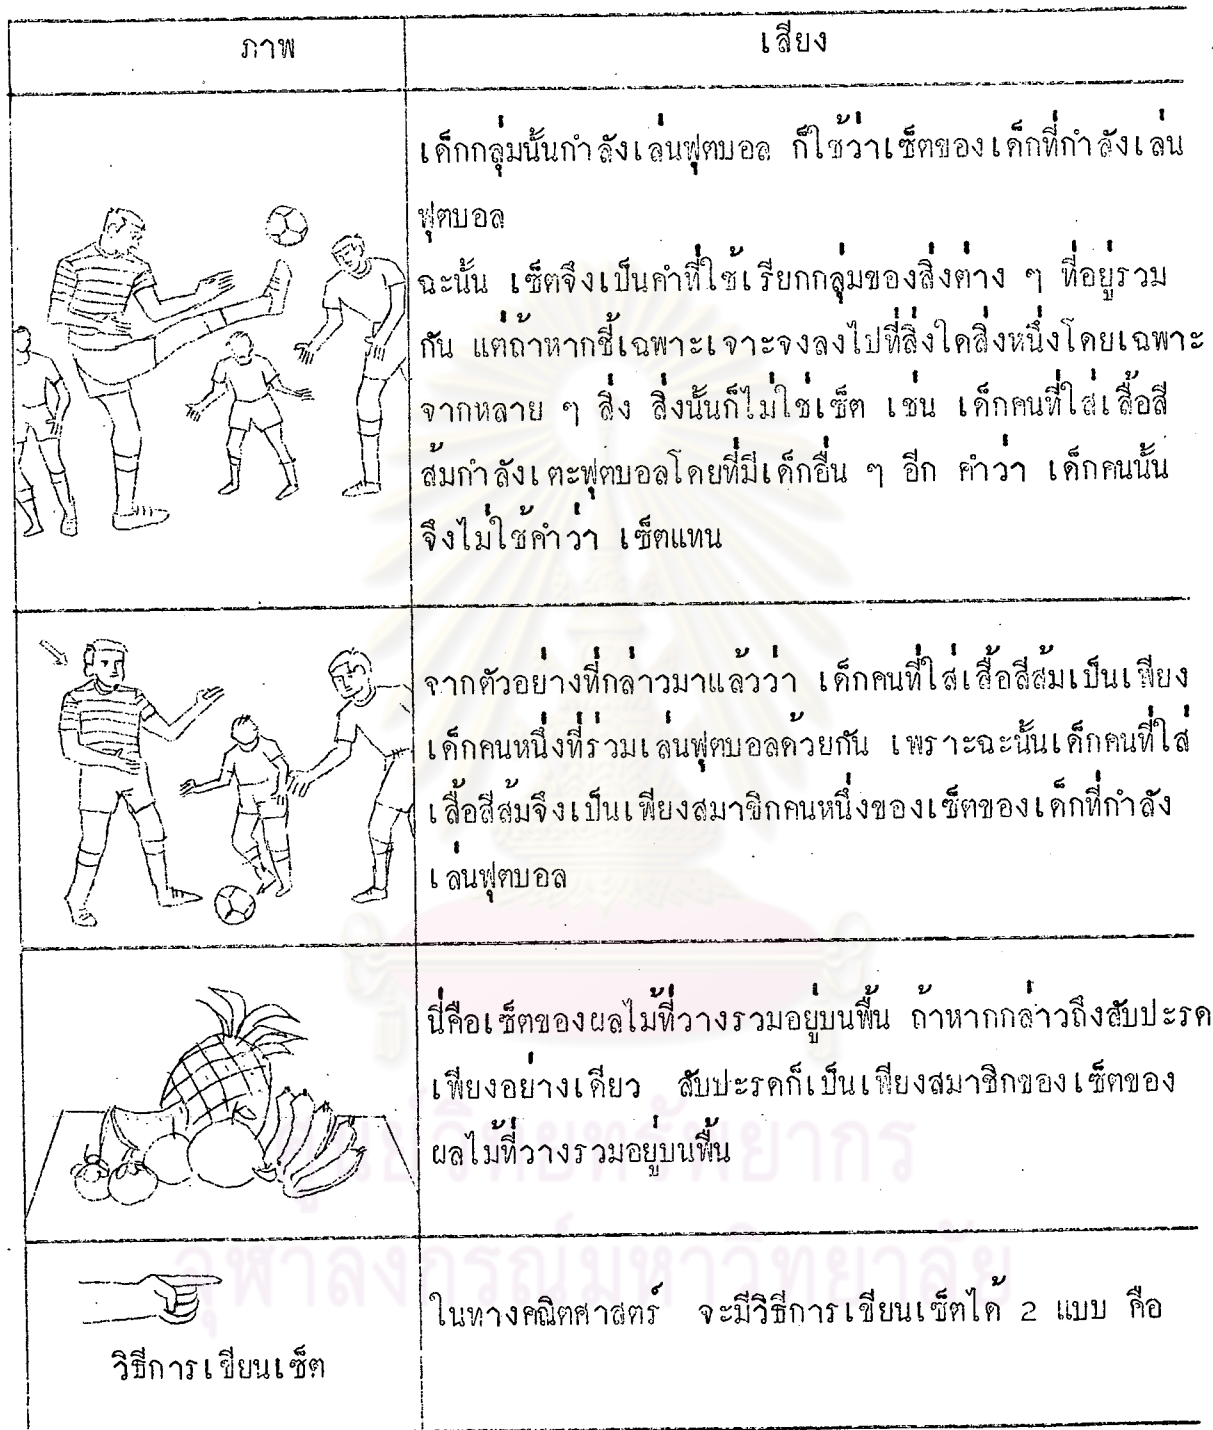 ภาพ
เสียง
เด็กกลุ่มนั้นกำลังเล่นฟุตบอล ก็ใช้ว่าเซ็ตของเด็กที่กำลังเล่น
ฟุตบอล
ฉะนั้น เซ็ตจึงเป็นคำที่ใช้เรียกกลุ่มของสิ่งต่าง ๆ ที่อยู่รวม
กัน แต่ถ้าหากชี้เฉพาะเจาะจงลงไปที่สิ่งใดสิ่งหนึ่งโดยเฉพาะ
จากหลาย ๆ สิ่ง สิ่งนั้นก็ไม่ใช่เซ็ต เช่น เด็กคนที่ใส่เสื้อสี
ส้มกำลังเตะฟุตบอลโดยที่มีเด็กอื่น ๆ อีก คำว่า เด็กคนนั้น
จึงไม่ใช้คำว่า เซ็ตแทน
จากตัวอย่างที่กล่าวมาแล้วว่า เด็กคนที่ใส่เสื้อสีส้มเป็นเพียง
เด็กคนหนึ่งที่ร่วมเล่นฟุตบอลด้วยกัน เพราะฉะนั้นเด็กคนที่ใส่
เสื้อสีส้มจึงเป็นเพียงสมาชิกคนหนึ่งของเซ็ตของเด็กที่กำลัง
เล่นฟุตบอล
นี่คือเซ็ตของผลไม้ที่วางรวมอยู่บนพื้น ถ้าหากกล่าวถึงสับปะรด
เพียงอย่างเดียว สับปะรดก็เป็นเพียงสมาชิกของเซ็ตของ
ผลไม้ที่วางรวมอยู่บนพื้น
ศูนย์วิทยทรัพยากร
จุฬาลงกรณ์มหาวิทยาลัย
ในทางคณิตศาสตร์ จะมีวิธีการเขียนเซ็ตได้ 2 แบบ คือ
วิธีการเขียนเซ็ต